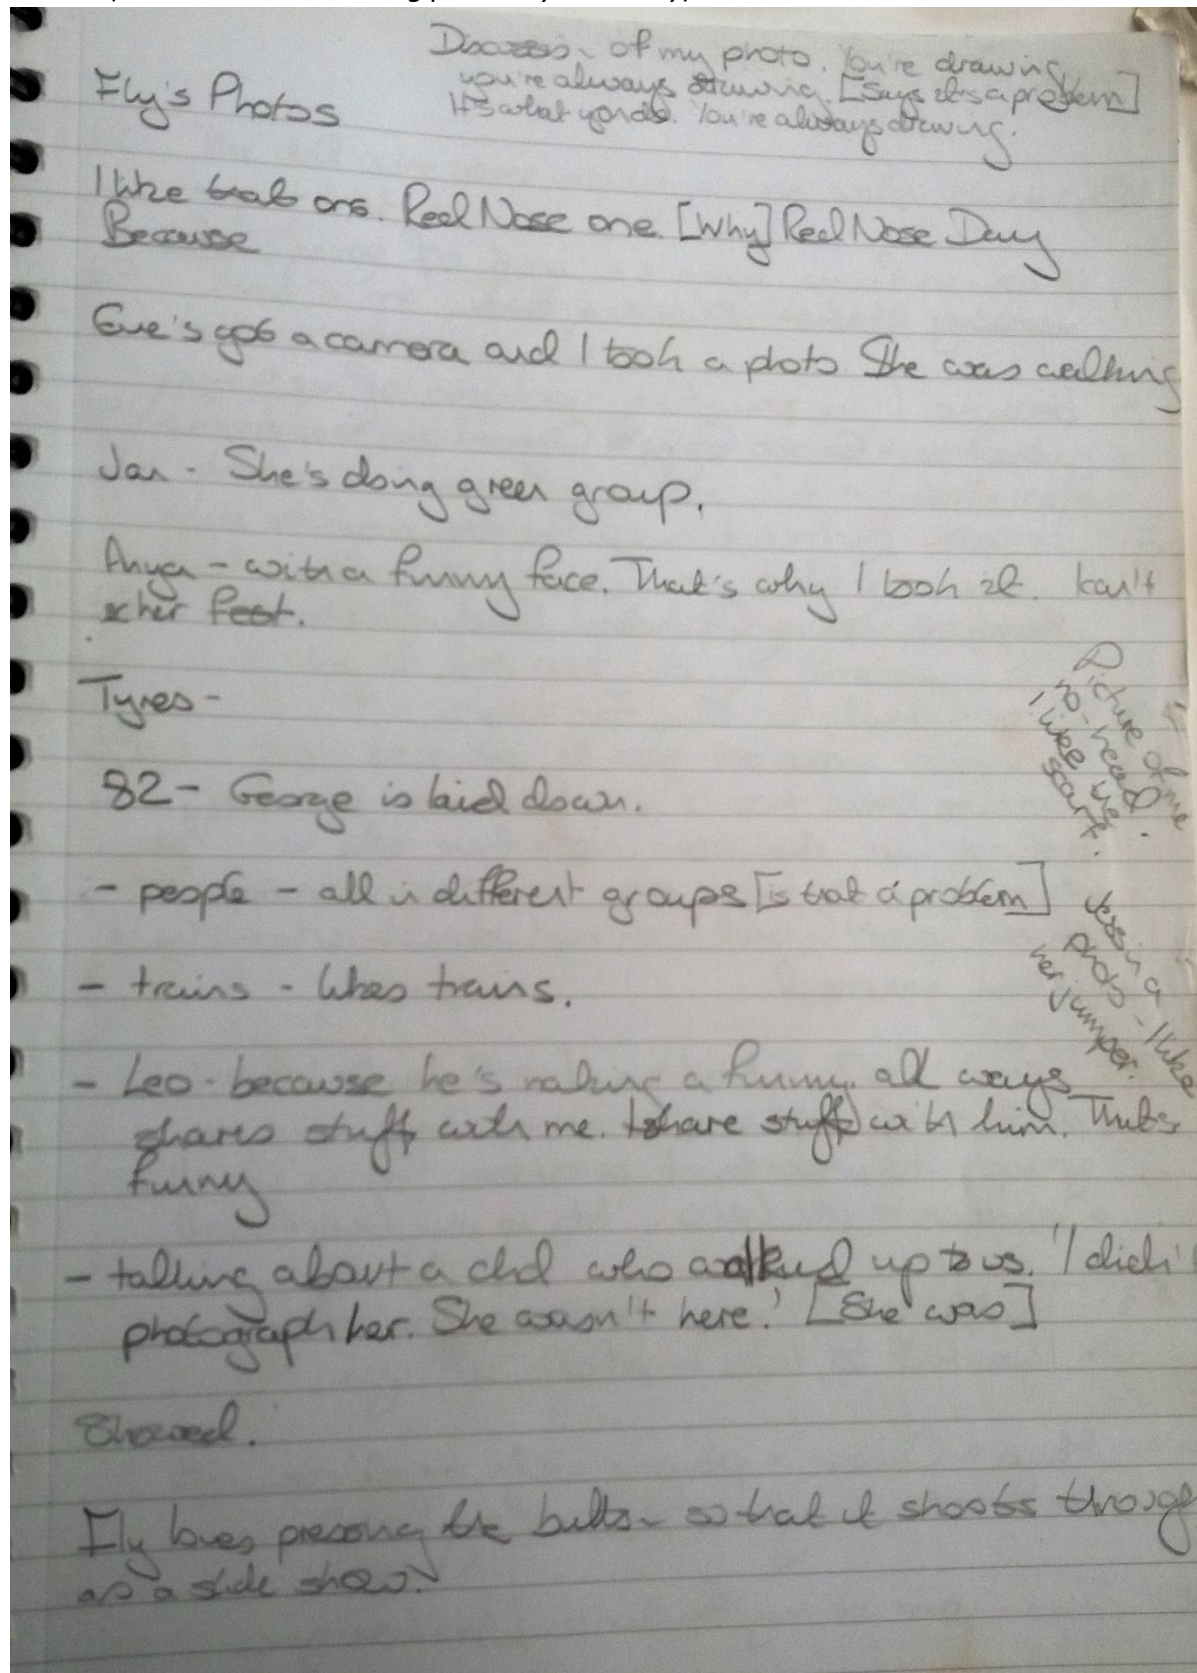 Fly's Photos
Discussion of my photo. You're drawing,
you're always drawing. [Says it's a problem]
It's what you do. You're always drawing.
I like that one. Red Nose one. [Why] Red Nose Day
Because
Eve's got a camera and I took a photo She was walking
Jan - She's doing green group.
Anya - with a funny face. That's why I took it. I can't
her feet.
Tyres -
82 - George is laid down.
- people - all in different groups [is that a problem]
- trains - likes trains.
- Leo - because he's making a funny. all ways
shares stuff with me. I share stuff with him. That's
funny
- talking about a chd who walked up to us. 'I didn'
photograph her. She wasn't here.' [She was]
Showed.
Fly loves pressing the button so that it shoots through
as a slide show.
Picture of me
no-head.
I like
scarf.
Jess in a
photo - I like
her jumper.